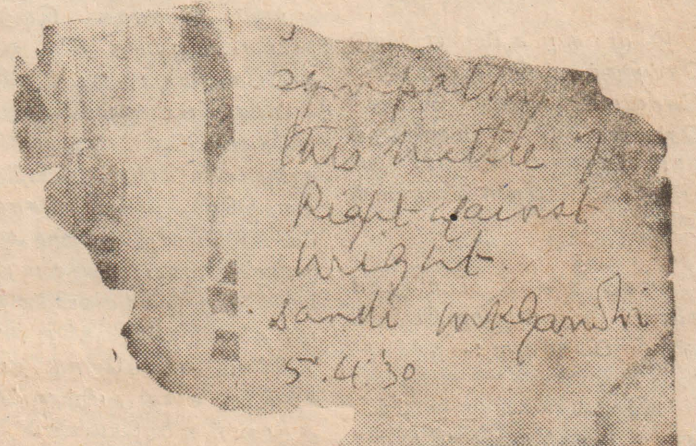 sympathy in
this battle of
Right against
Might.
Dandi MKGandhi
5.4.30